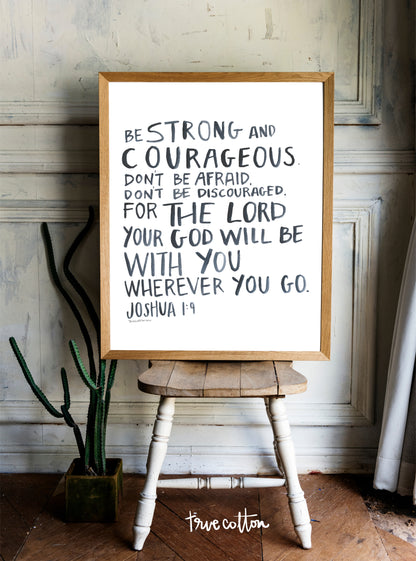 BE STRONG AND
COURAGEOUS.
DON'T BE AFRAID.
DON'T BE DISCOURAGED,
FOR THE LORD
YOUR GOD WILL BE
WITH YOU
WHEREVER YOU GO.
JOSHUA 1:9
true cotton